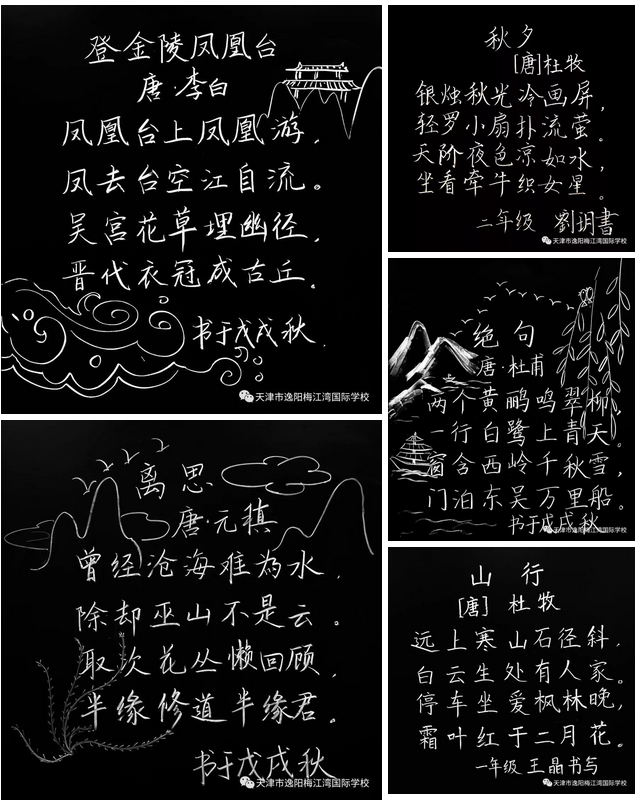 登金陵凤凰台
唐·李白
凤凰台上凤凰游，
凤去台空江自流。
吴宫花草埋幽径，
晋代衣冠成古丘。
书于戊戌秋.
天津市逸阳梅江湾国际学校
秋夕
[唐]杜牧
银烛秋光冷画屏，
轻罗小扇扑流萤。
天阶夜色凉如水，
坐看牵牛织女星。
二年级 劉玥書
天津市逸阳梅江湾国际学校
绝句
唐·杜甫
两个黄鹂鸣翠柳，
一行白鹭上青天。
窗含西岭千秋雪，
门泊东吴万里船。
书于戊戌秋
天津市逸阳梅江湾国际学校
离思
唐·元稹
曾经沧海难為水，
除却巫山不是云。
取次花丛懒回顾，
半缘修道半缘君。
书于戊戌秋
天津市逸阳梅江湾国际学校
山行
[唐] 杜牧
远上寒山石径斜，
白云生处有人家。
停车坐爱枫林晚，
霜叶红于二月花。
一年级 王晶书写
天津市逸阳梅江湾国际学校